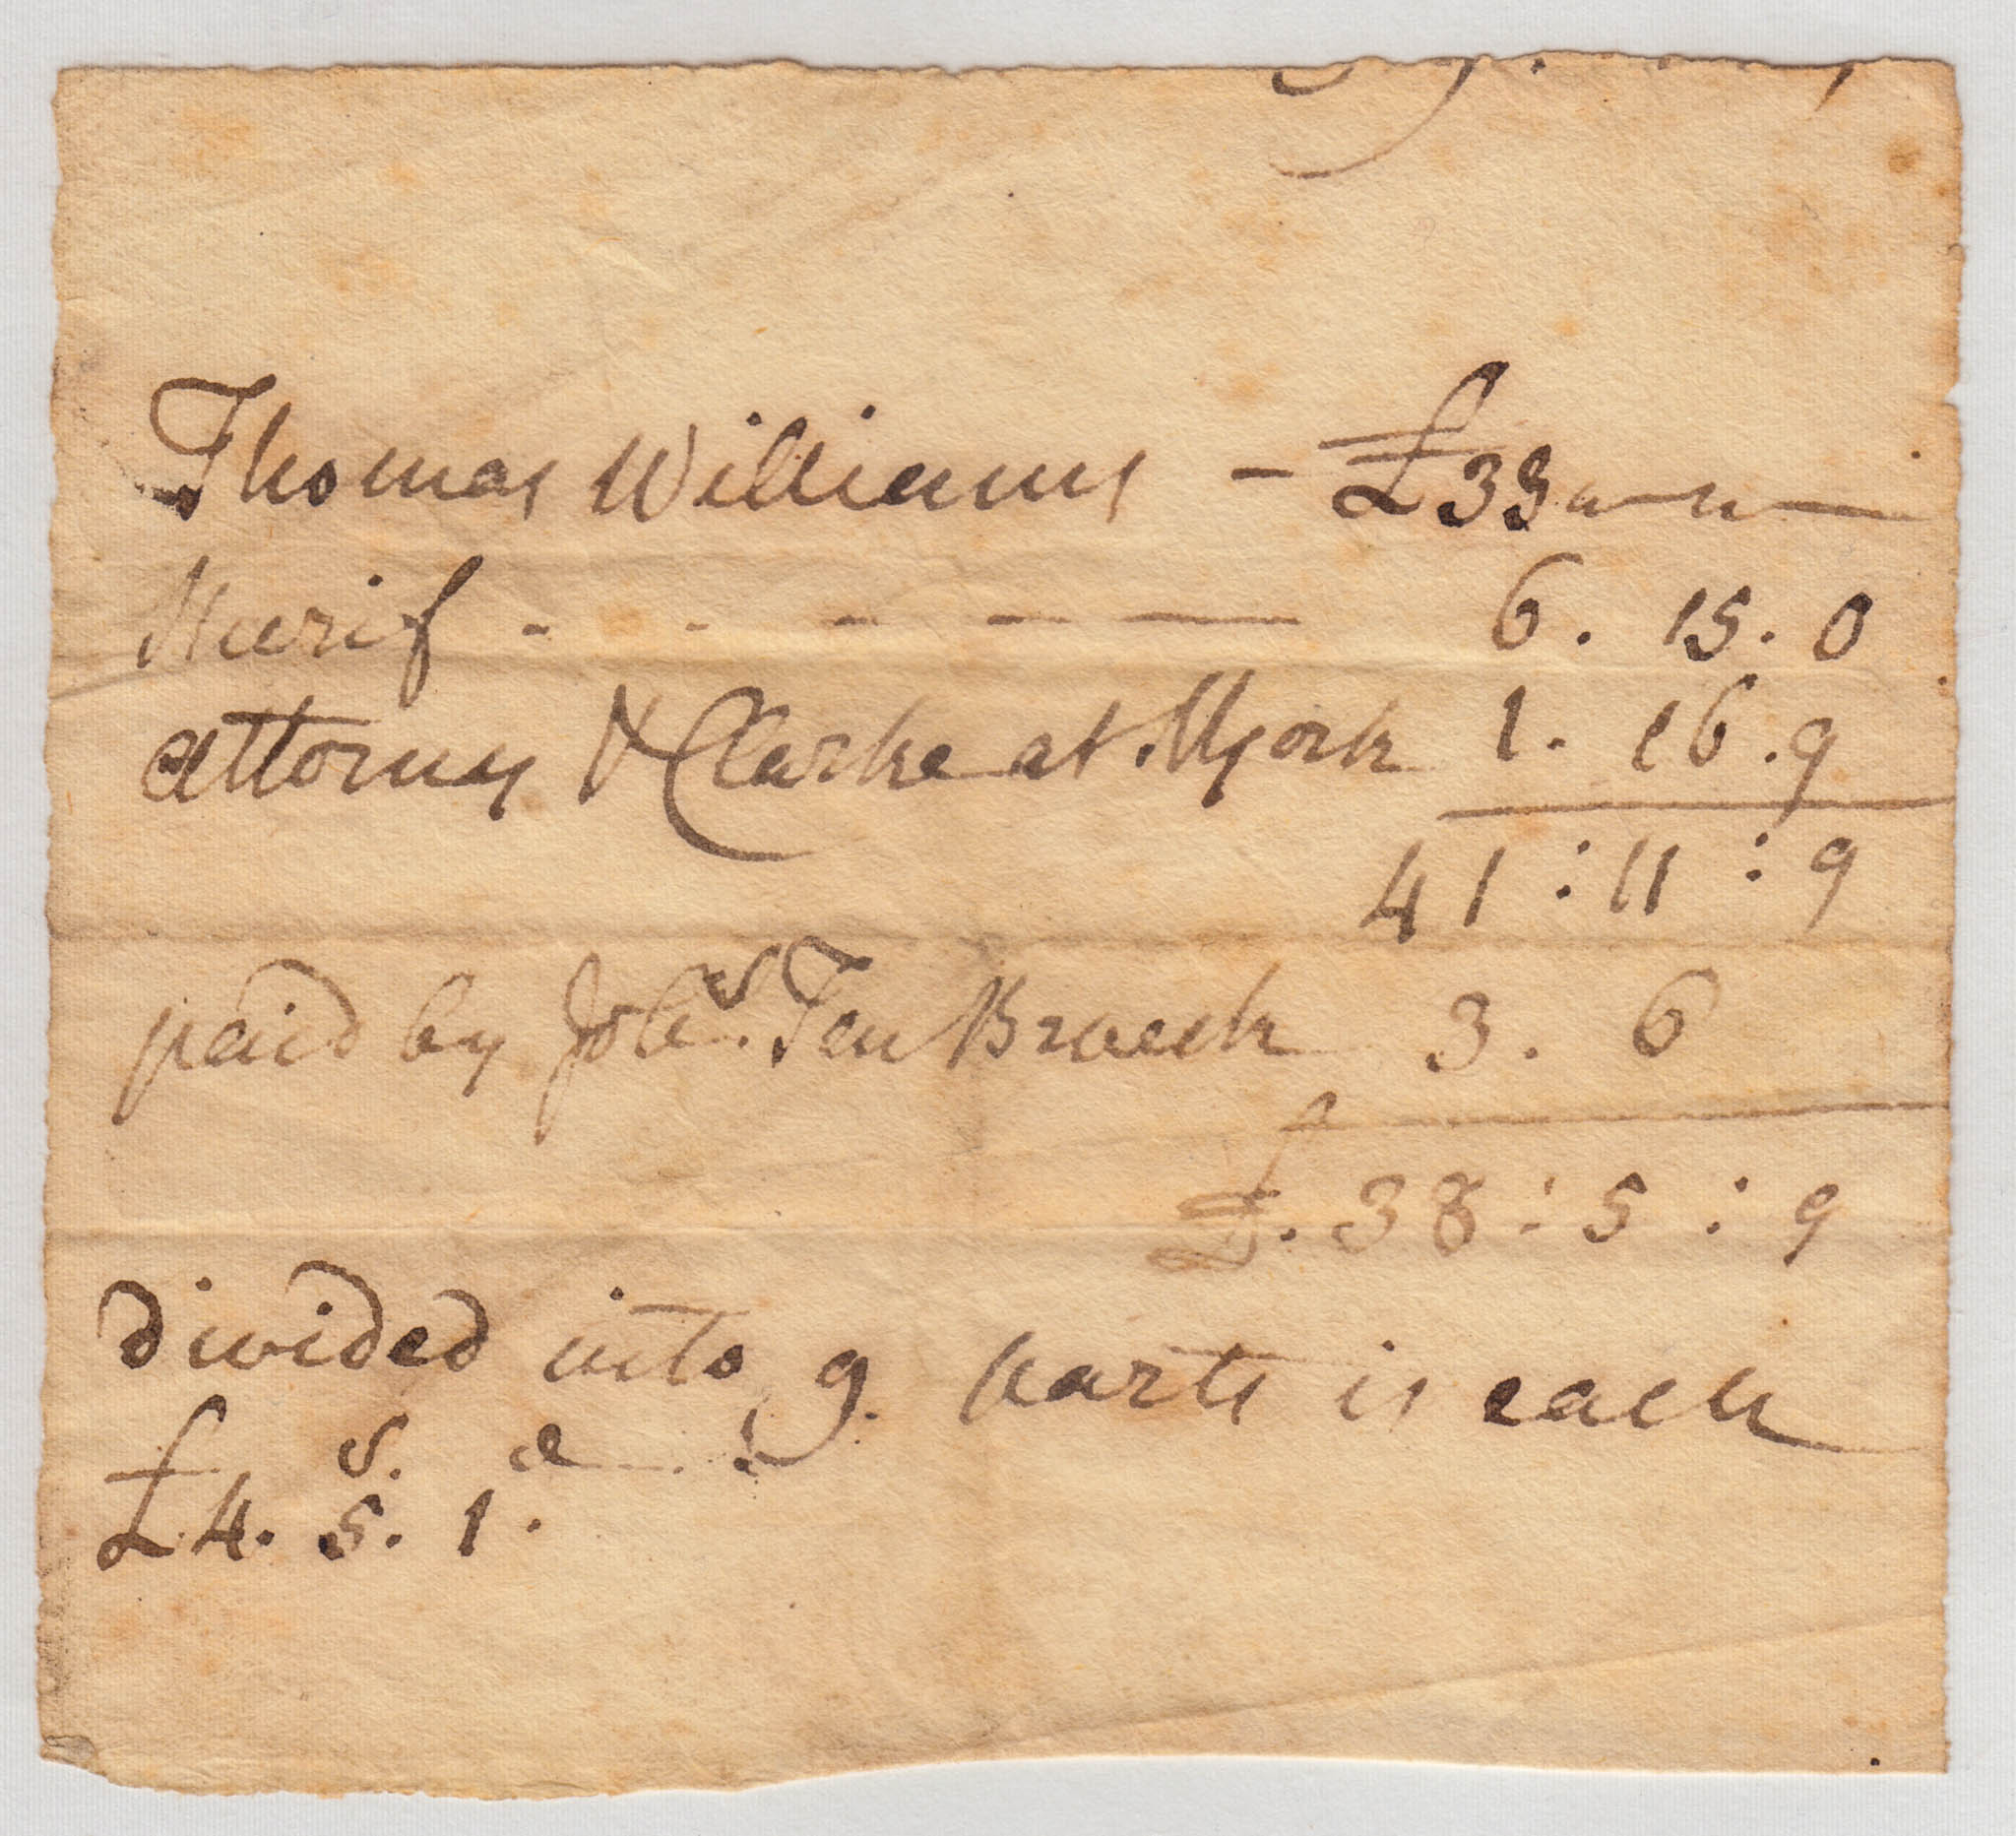 Thomas Williams – £33 " – " –
Sherif - - - - - 6 . 15 . 0
attorny & Clarke at NYork 1 . 16 . 9
41 : 11 : 9
paid by Joh.s Ten Broeck 3 . 6
£ . 38 : 5 : 9
divided into 9. parts is each
s. d
£ 4. 5. 1.